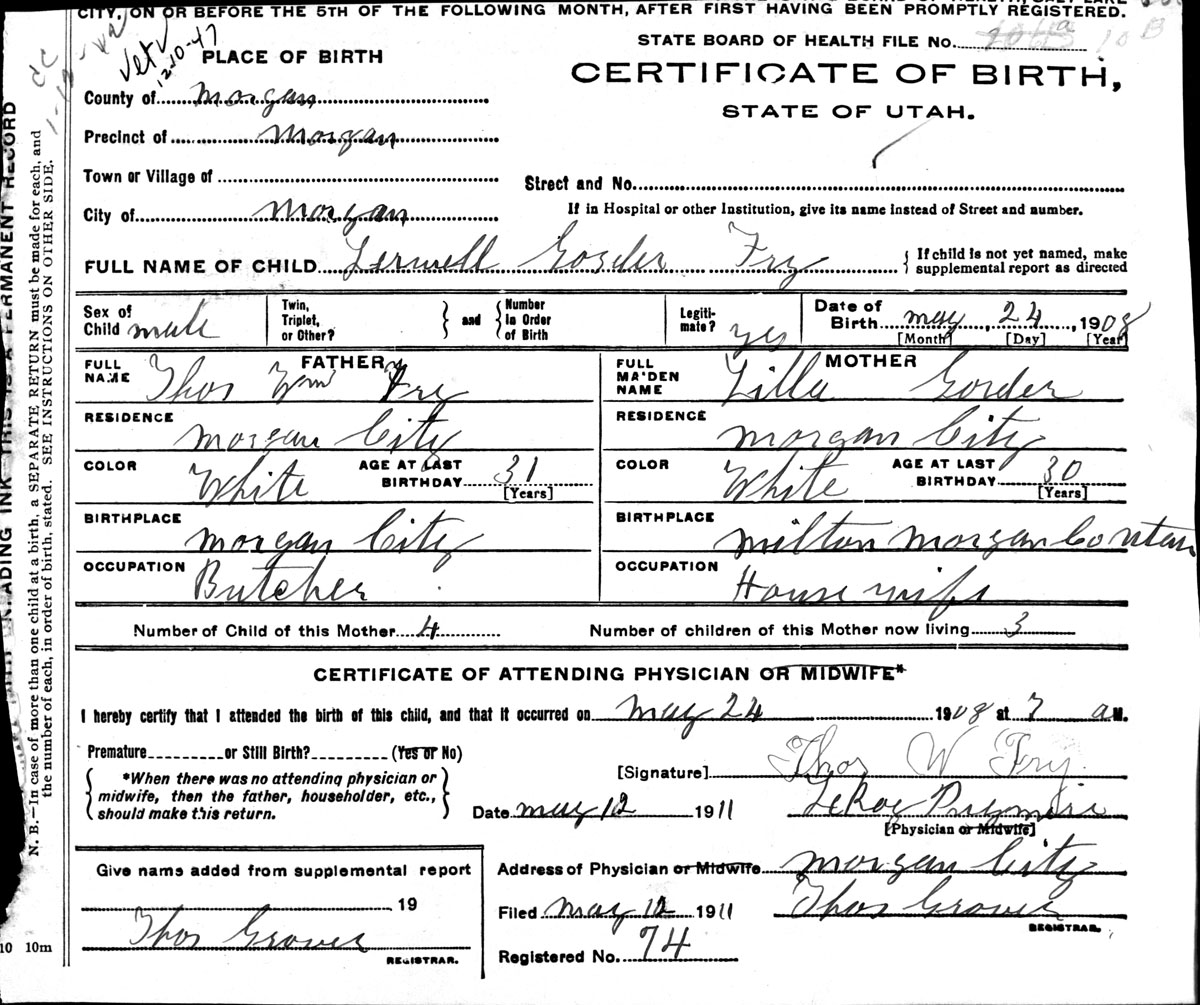 CITY, ON OR BEFORE THE 5TH OF THE FOLLOWING MONTH, AFTER FIRST HAVING BEEN PROMPTLY REGISTERED.
Vet V
12-10-47
PLACE OF BIRTH
STATE BOARD OF HEALTH FILE No.
CERTIFICATE OF BIRTH,
STATE OF UTAH.
County of Morgan
Precinct of Morgan
Town or Village of
Street and No.
City of Morgan
If in Hospital or other Institution, give its name instead of Street and number.
FULL NAME OF CHILD Gorder Fry { If child is not yet named, make supplemental report as directed
Sex of Child male
Twin, Triplet, or Other? } and { Number in Order of Birth
Legitimate? yes
Date of Birth may, 24, 1908
[Month] [Day] [Year]
FATHER
FULL NAME Thos Wm Fry
MOTHER
FULL MAIDEN NAME Lilla Gorder
RESIDENCE Morgan City
RESIDENCE Morgan City
COLOR White AGE AT LAST BIRTHDAY 31 [Years]
COLOR White AGE AT LAST BIRTHDAY 30 [Years]
BIRTHPLACE Morgan City
BIRTHPLACE Milton Morgan Co Utah
OCCUPATION Butcher
OCCUPATION House wife
Number of Child of this Mother 4
Number of children of this Mother now living 3
CERTIFICATE OF ATTENDING PHYSICIAN OR MIDWIFE*
I hereby certify that I attended the birth of this child, and that it occurred on May 24 1908 at 7 a M.
Premature or Still Birth? (Yes or No)
{ *When there was no attending physician or midwife, then the father, householder, etc., should make this return. }
[Signature] Thos W Fry
Date May 12 1911
LeRoy Pugmire
[Physician or Midwife]
Give name added from supplemental report
19
Thos Grover
REGISTRAR.
Address of Physician or Midwife Morgan City
Filed May 12 1911 Thos Grover
REGISTRAR.
Registered No. 74
N. B.—In case of more than one child at a birth, a SEPARATE RETURN must be made for each, and
the number of each, in order of birth, stated. SEE INSTRUCTIONS ON OTHER SIDE.
ADING INK THIS IS A PERMANENT RECORD
10 10m